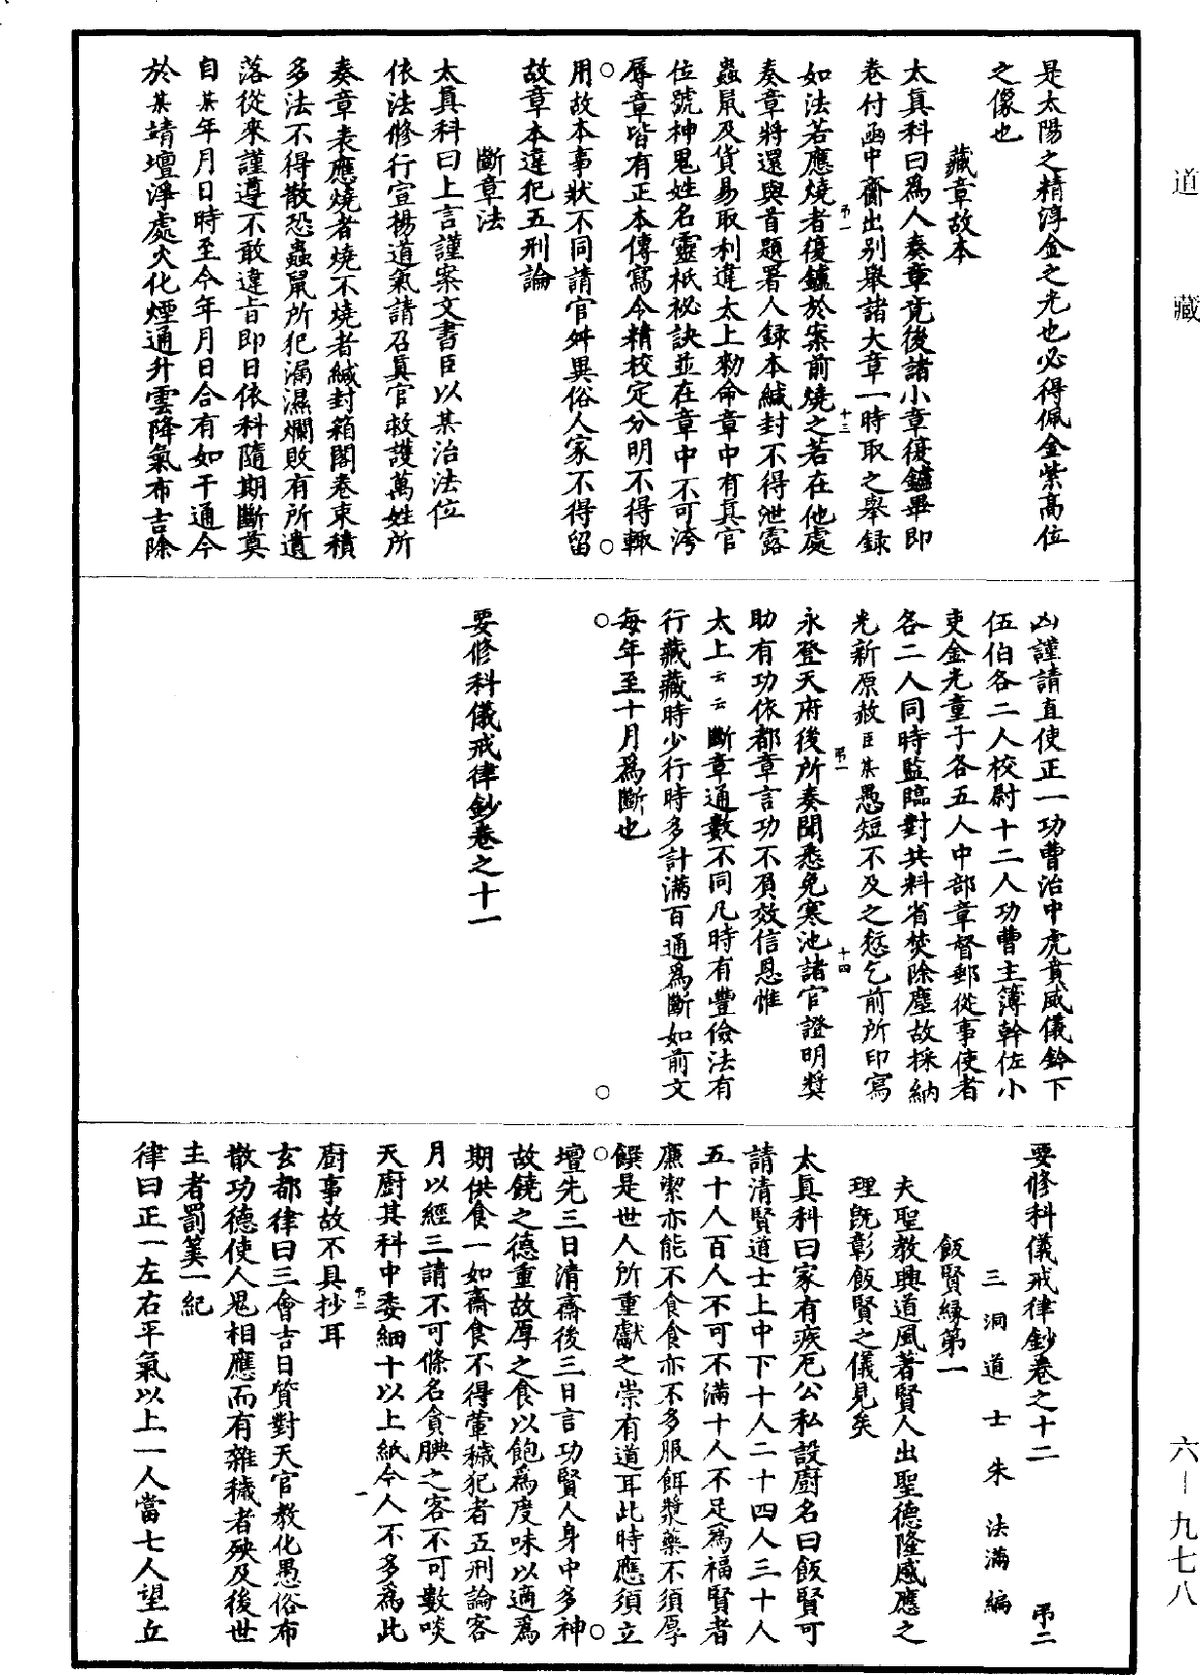 道藏
六—九七八
是太陽之精淳金之光也必得佩金紫高位
之像也
藏章故本
太真科曰為人奏章竟後諸小章復鑪畢即
卷付函中齋出别舉諸大章一時取之舉録
弔一
十三
如法若應燒者復鑪於案前燒之若在他處
奏章將還與首題署人録本緘封不得泄露
蟲鼠及貨易取利違太上勑命章中有真官
位號神鬼姓名靈祇祕訣並在章中不可洿
辱章皆有正本傳寫今精校定分明不得輙
用故本事狀不同請官舛異俗人家不得留
故章本違犯五刑論
斷章法
太真科曰上言謹案文書臣以某治法位
依法修行宣揚道氣請召真官救護萬姓所
奏章表應燒者燒不燒者緘封箱閣卷束積
多法不得散恐蟲鼠所犯漏濕爛敗有所遺
落從來謹遵不敢違旨即日依科隨期斷奠
自某年月日時至今年月日合有如干通今
於某靖壇淨處火化煙通升雲降氣布吉除
凶謹請直使正一功曹治中虎賁威儀鈴下
伍伯各二人校尉十二人功曹主簿幹佐小
吏金光童子各五人中部章督郵從事使者
各二人同時監臨對共料省焚除塵故採納
光新原赦臣某愚短不及之愆乞前所印寫
弔一
十四
永登天府後所奏聞悉免寒池諸官證明奬
助有功依都章言功不負效信恩惟
太上云云斷章通數不同凡時有豐儉法有
行藏藏時少行時多計滿百通為斷如前文
每年至十月為斷也
要修科儀戒律鈔卷之十一
要修科儀戒律鈔卷之十二
弔二
三洞道士朱法滿編
飯賢緣第一
夫聖教興道風著賢人出聖德隆感應之
理既彰飯賢之儀見矣
太真科曰家有疾厄公私設廚名曰飯賢可
請清賢道士上中下十人二十四人三十人
五十人百人不可不滿十人不足為福賢者
廉潔亦能不食食亦不多服餌漿藥不須厚
饌是世人所重獻之崇有道耳此時應須立
壇先三日清齋後三日言功賢人身中多神
故饒之德重故厚之食以飽為度味以適為
期供食一如齋食不得葷穢犯者五刑論客
月以經三請不可條名貪腆之客不可數啖
天廚其科中委細十以上紙今人不多為此
弔二
一
廚事故不具抄耳
玄都律曰三會吉日質對天官教化愚俗布
散功德使人鬼相應而有雜穢者殃及後世
主者罰筭一紀
律曰正一左右平氣以上一人當七人望丘